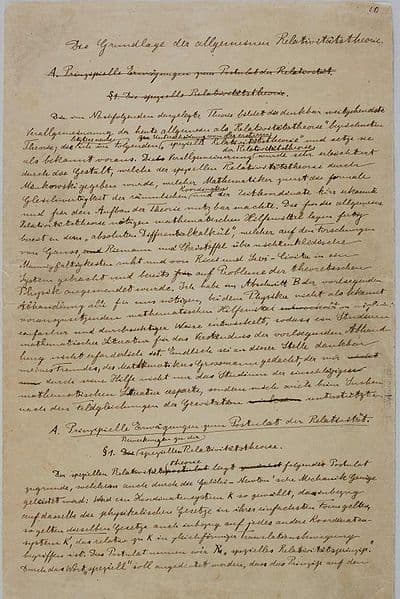 Die Grundlage der allgemeinen Relativitätstheorie.
A. Prinzipielle Erwägungen zum Postulat der Relativität.
§1. Die spezielle Relativitätstheorie.
Die im Nachfolgenden dargelegte Theorie bildet die denkbar weitgehendste
Verallgemeinerung der heute allgemein als "Relativitätstheorie" bezeichneten
Theorie; die letztere im folgenden "spezielle Relativitätstheorie" und setze sie
als bekannt voraus. Die Verallgemeinerung der Relativitätstheorie wurde sehr erleichtert
durch die Gestalt, welche der speziellen Relativitätstheorie durch
Minkowski gegeben wurde, welcher Mathematiker zuerst die formale
Gleichwertigkeit der räumlichen Koordinaten und der Zeitkoordinate klar erkannte
und für den Aufbau der Theorie nutzbar machte. Die für die allgemeine
Relativitätstheorie nötigen mathematischen Hilfsmittel lagen fertig
bereit in dem "absoluten Differentialkalkül", welcher auf den Forschungen
von Gauss, Riemann und Christoffel über nichteuklidische
Mannigfaltigkeiten ruht und von Ricci und Levi-Civita in ein
System gebracht und bereits auf Probleme der theoretischen
Physik angewendet wurde. Ich habe im Abschnitt B der vorliegenden
Abhandlung alle für uns nötigen, bei dem Physiker nicht als bekannt
vorauszusetzenden mathematischen Hilfsmittel in möglichst
einfacher und durchsichtiger Weise entwickelt, sodass ein Studium
mathematischer Literatur für das Verständnis der vorliegenden Abhand-
lung nicht erforderlich ist. Endlich sei an dieser Stelle dankbar
meines Freundes, des Mathematikers Grossmann gedacht, der mir
durch seine Hilfe nicht nur das Studium der einschlägigen
mathematischen Literatur ersparte, sondern mich auch beim Suchen
nach den Feldgleichungen der Gravitation unterstützte.
A. Prinzipielle Erwägungen zum Postulat der Relativität.
Bemerkungen zu der
§1. Die speziellen Relativitätstheorie.
Der speziellen Relativitätstheorie liegt folgendes Postulat
zugrunde, welchem auch durch die Galilei-Newton'sche Mechanik Genüge
geleistet wird: Wird ein Koordinatensystem K so gewählt, dass in bezug
auf dasselbe die physikalischen Gesetze in ihrer einfachsten Form gelten,
so gelten dieselben Gesetze auch in bezug auf jedes andere Koordinaten-
system K', das relativ zu K in gleichförmiger Translationsbewegung
begriffen ist. Dies Postulat nennen wir "spezielles Relativitätsprinzip".
Durch das Wort "speziell" soll angedeutet werden, dass das Prinzip auf den